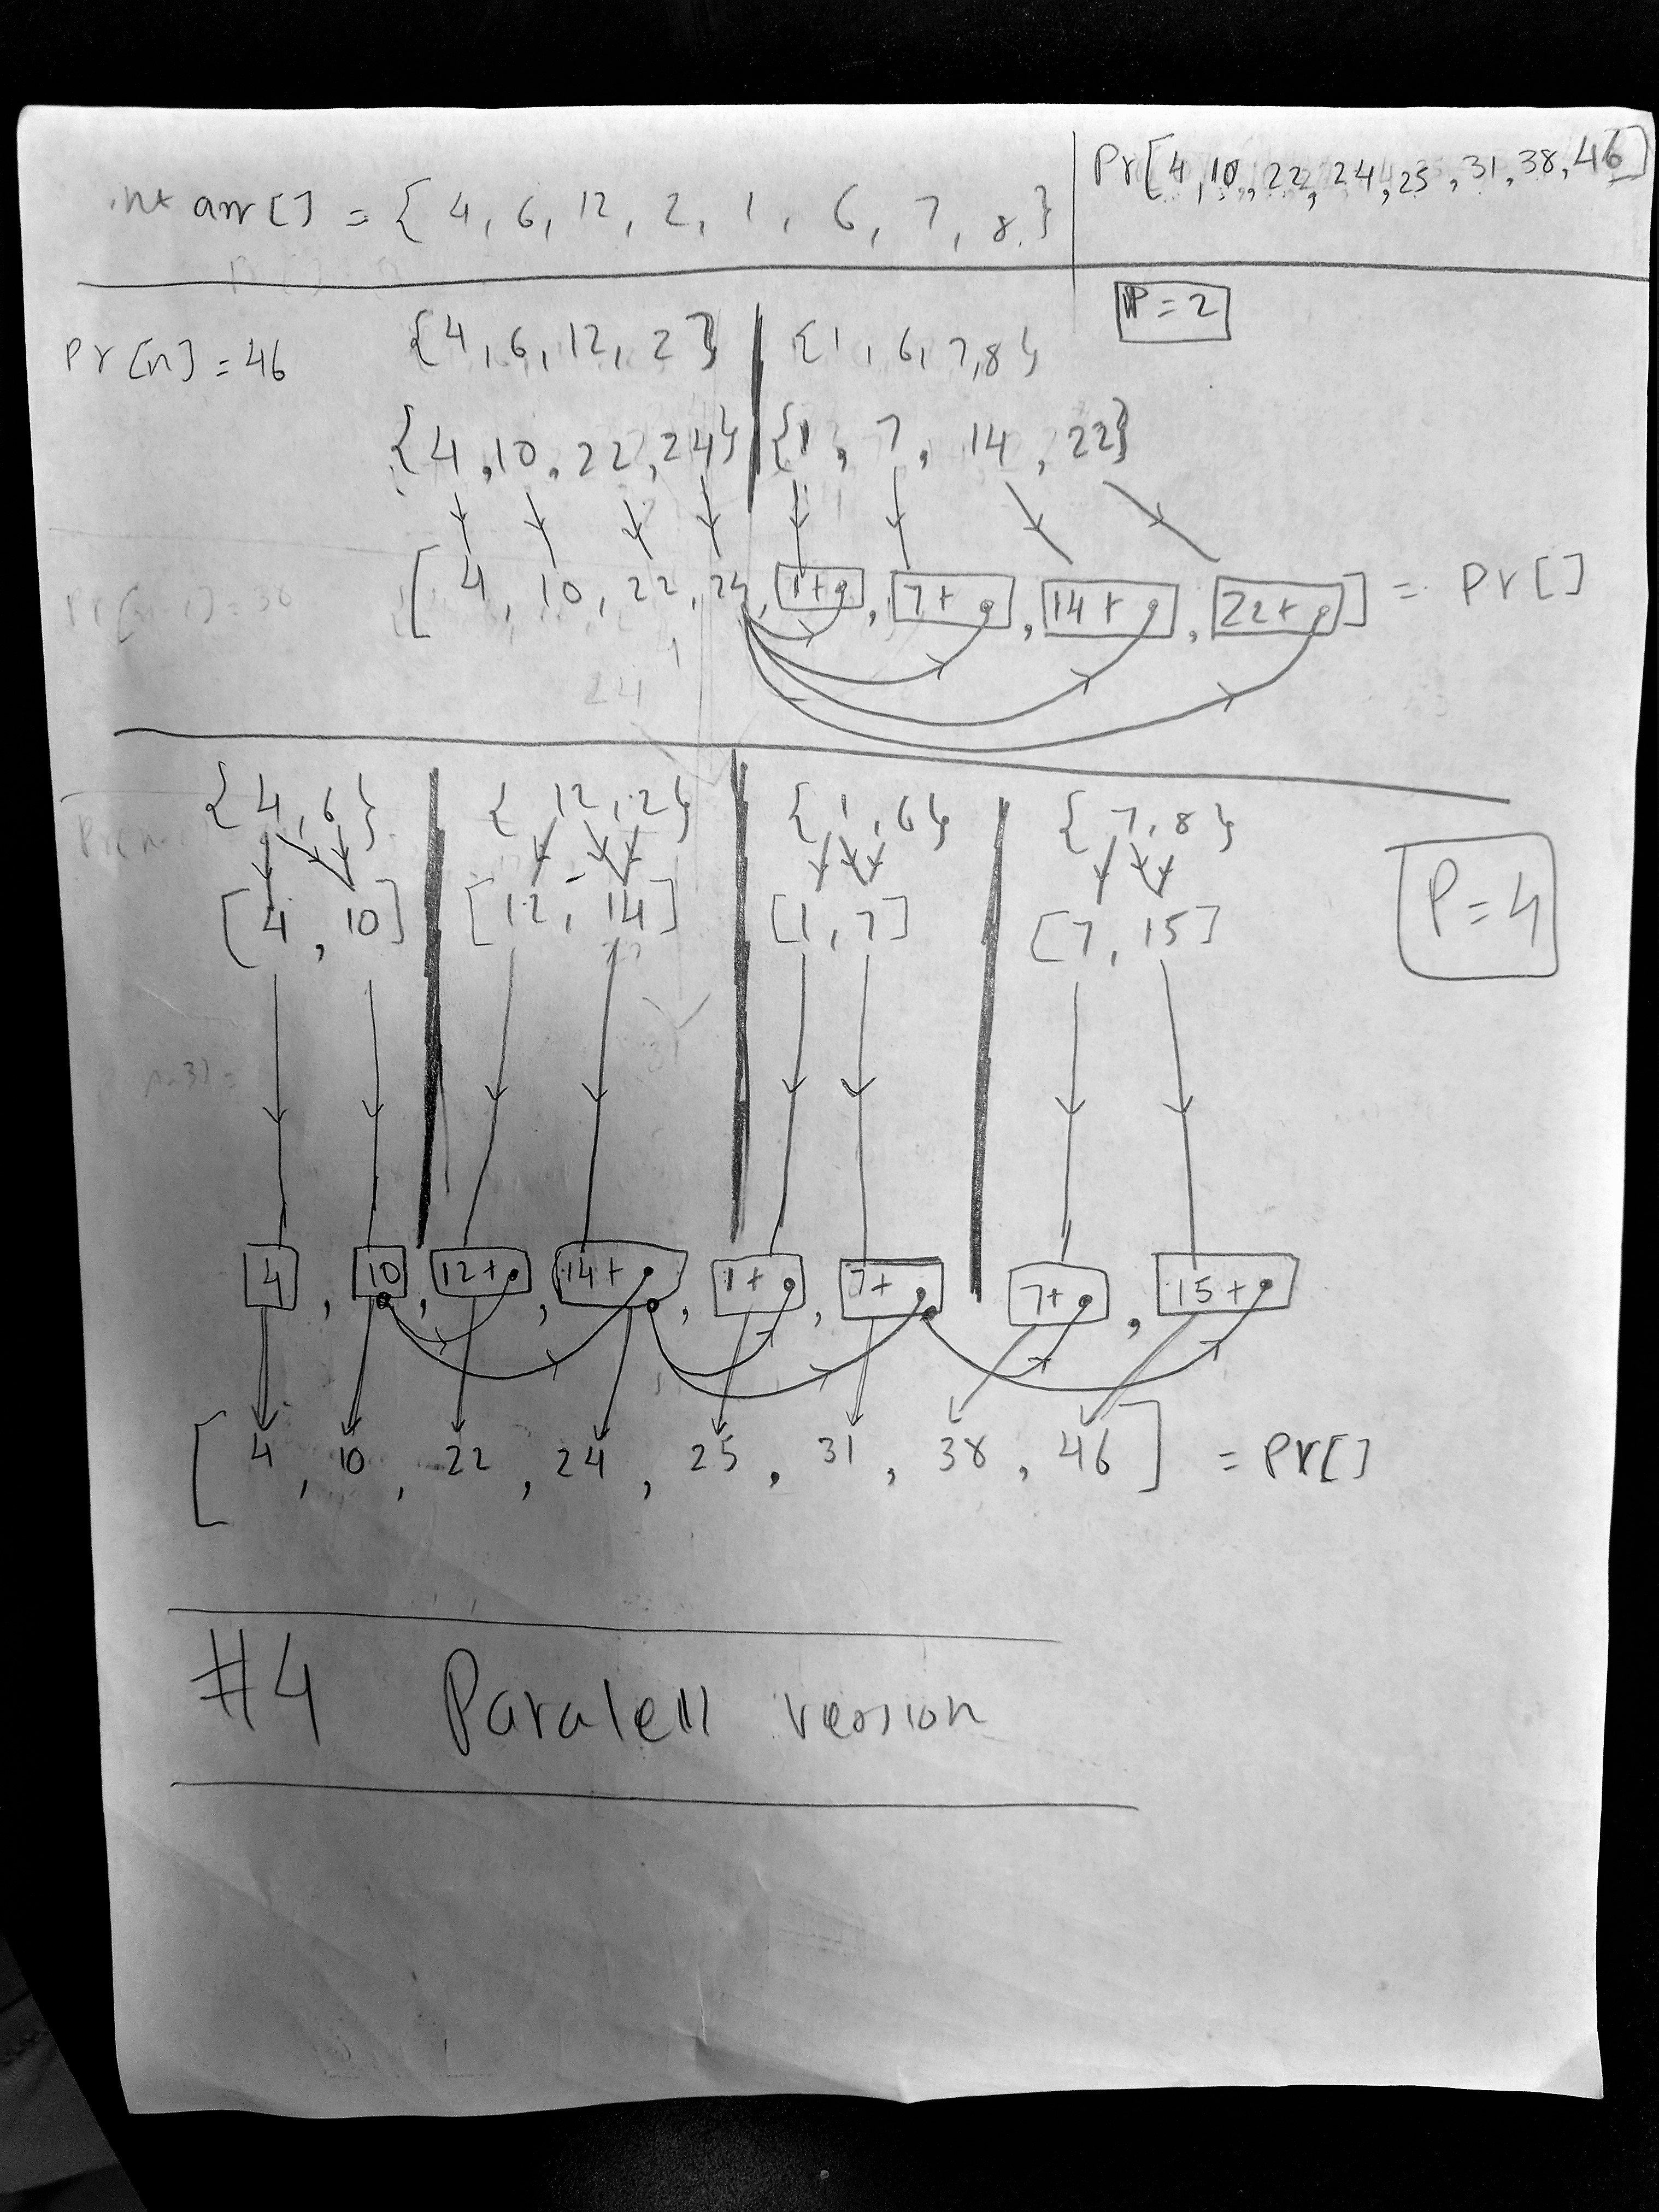 int arr[] = { 4, 6, 12, 2, 1, 6, 7, 8 }
Pr[4, 10, 22, 24, 25, 31, 38, 46]
P=2
Pr[n] = 46
{4, 6, 12, 2} {1, 6, 7, 8}
{4, 10, 22, 24} {1, 7, 14, 22}
[4, 10, 22, 24, 1+, 7+, 14+, 22+] = Pr[]
{4, 6} {12, 2} {1, 6} {7, 8}
P=4
[4, 10] [12, 14] [1, 7] [7, 15]
4, 10, 12+, 14+, 1+, 7+ 7+, 15+
[4, 10, 22, 24, 25, 31, 38, 46] = Pr[]
#4 Paralell version